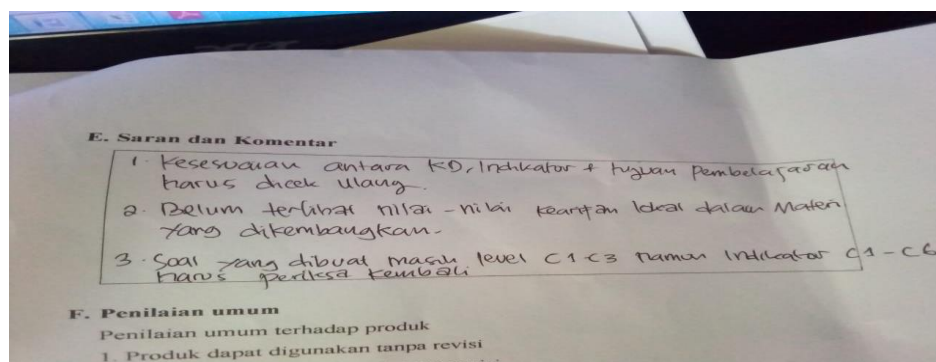 E. Saran dan Komentar
1. Kesesuaian antara KD, Indikator + tujuan Pembelajaran
harus dicek ulang.
2. Belum terlihat nilai-nilai kearifan lokal dalam Materi
yang dikembangkan.
3. Soal yang dibuat masih level C1-C3 namun Indikator C1-C6
harus periksa kembali
F. Penilaian umum
Penilaian umum terhadap produk
1. Produk dapat digunakan tanpa revisi